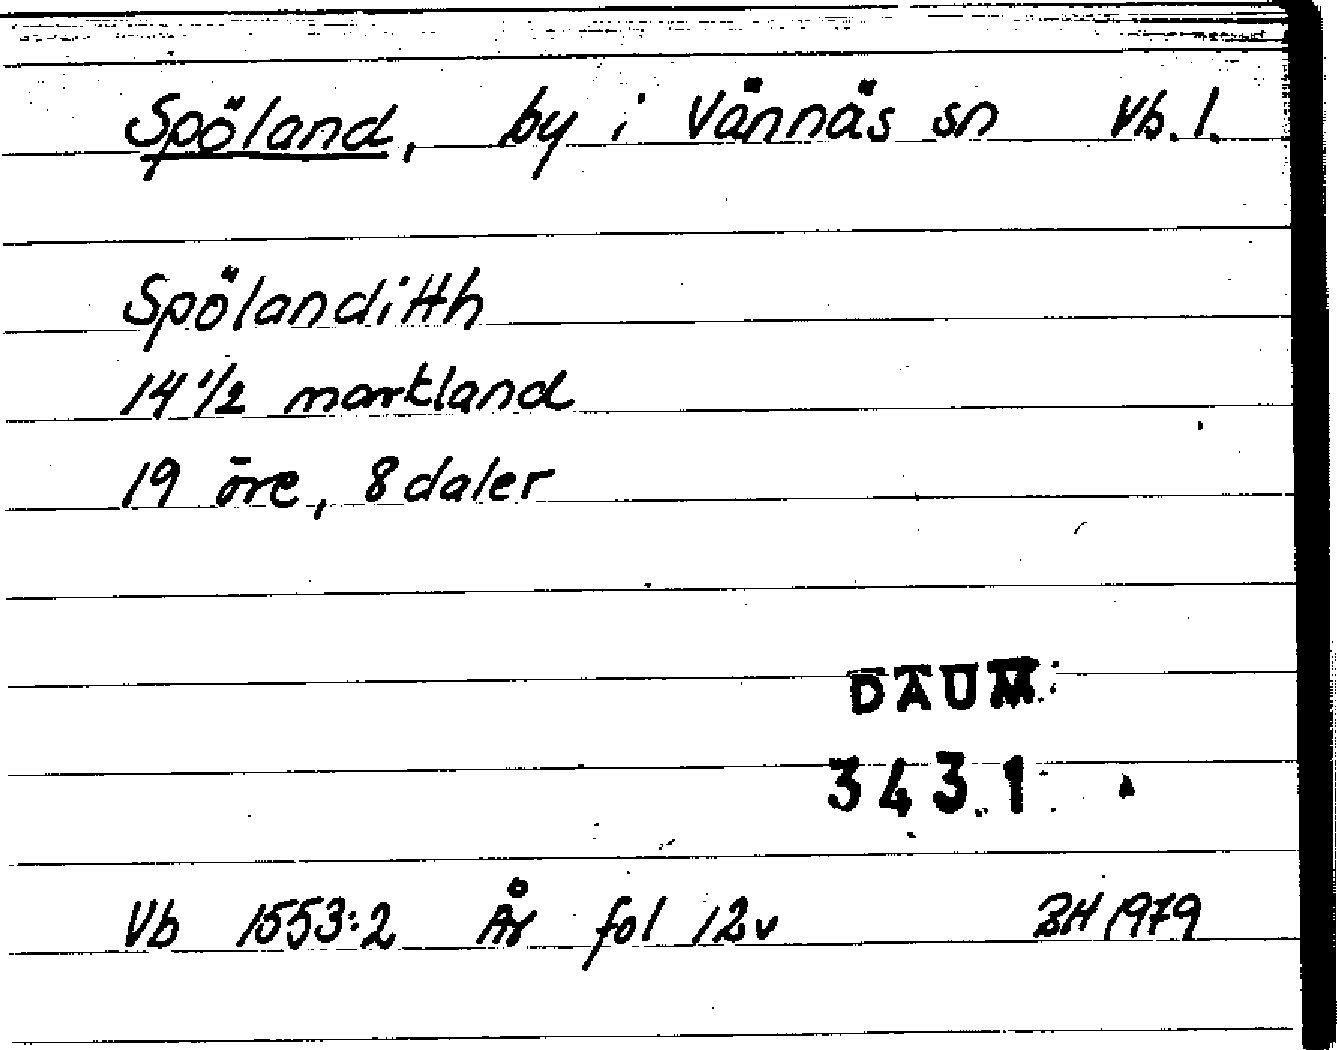 Spöland, by i Vännäs sn Vb. l.
Spölanditth
14 1/2 markland
19 öre, 8 daler
DAUM
3431
Vb 1553:2 År fol 12v BH 1979